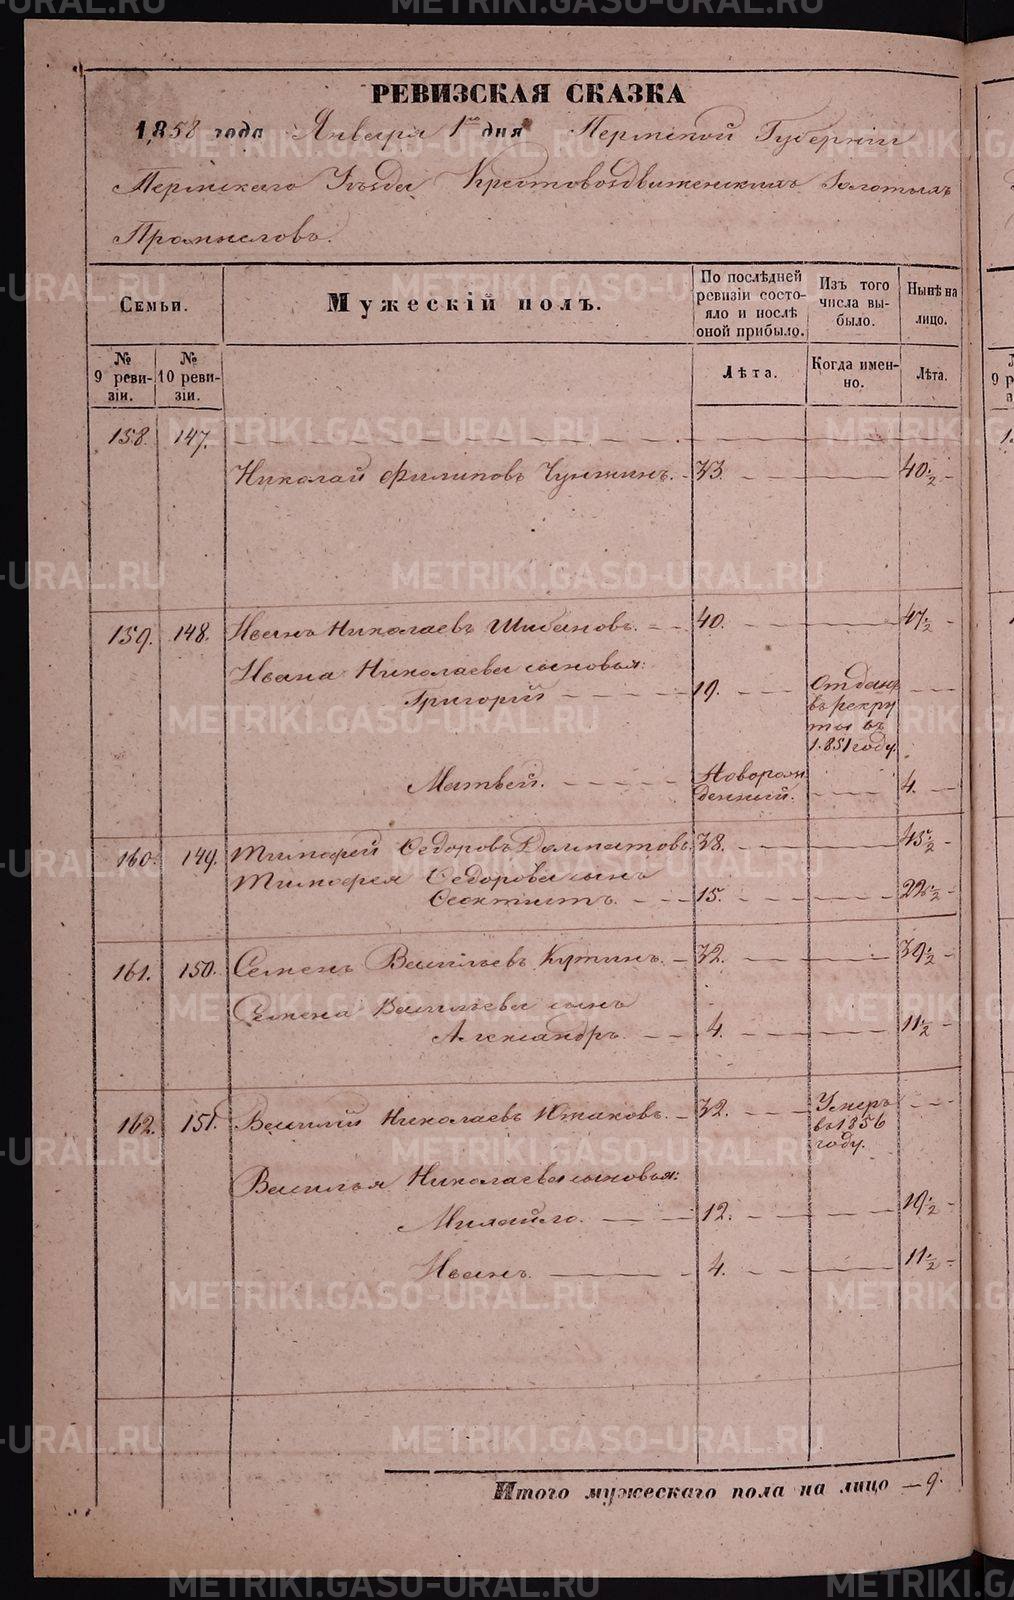 РЕВИЗСКАЯ СКАЗКА
1858 года Января 1го дня Пермской Губерніи
Пермскаго Уѣзда Крестовоздвиженскихъ Золотыхъ
Промысловъ.
Семьи.
№ 9 реви-
зіи.
№ 10 реви-
зіи.
Мужескій полъ.
По послѣдней
ревизіи состо-
яло и послѣ
оной прибыло.
Лѣта.
Изъ того
числа вы-
было.
Когда имен-
но.
Нынѣ на
лицо.
Лѣта.
158. 147.
Николай Филиповъ 33. 40½
159. 148. Иванъ Николаевъ Шибановъ. 40. 47½
Ивана Николаева сыновья:
Григорій 19. Отданъ
въ рекру
ты въ
1851 году.
Матвей. Новорож
денный. 4.
160. 149. Тимофей Федоровъ Долматовъ 38. 45½
Тимофея Федорова сынъ
Феоктистъ. 15. 22½
161. 150. Семенъ Васильевъ Кутинъ. 32. 39½
Семена Васильева сынъ
Александръ. 4. 11½
162. 151. Василий Николаевъ Южаковъ. 32. Умеръ
въ 1856
году.
Василья Николаева сыновья:
Михайло. 12. 19½
Иванъ. 4. 11½
Итого мужескаго пола на лицо — 9.
METRIKI.GASO-URAL.RU